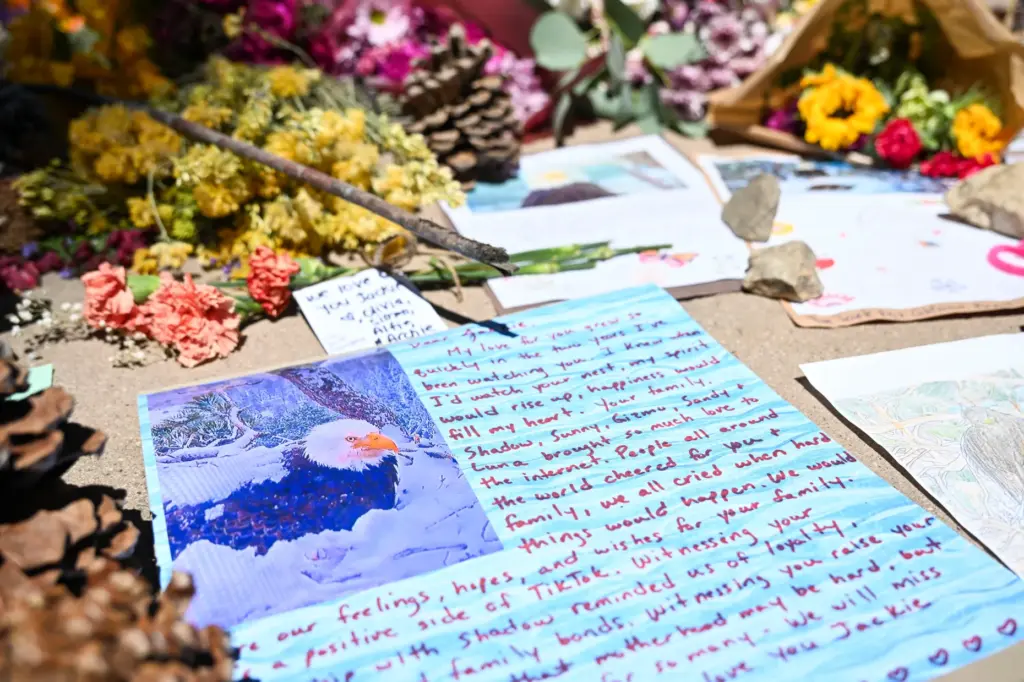 We love
you Jackie
Olivia,
Gizmo,
Alto,
Archie
Dear
My love for you grew so
quickly in the two years I've
been watching you. I knew when
I'd watch your nest, my spirit
would rise up, happiness would
fill my heart. Your family,
Shadow, Sunny, Gizmo, Sandy +
Luna brought so much love to
the internet. People all around
the world cheered for you +
family, we all cried when hard
things would happen. We would
our feelings, hopes, and wishes for your family.
a positive side of TikTok. Witnessing your
with Shadow reminded us of loyalty,
family bonds. Witnessing you raise your
that motherhood may be hard, but
for so many. We will miss
love you Jackie